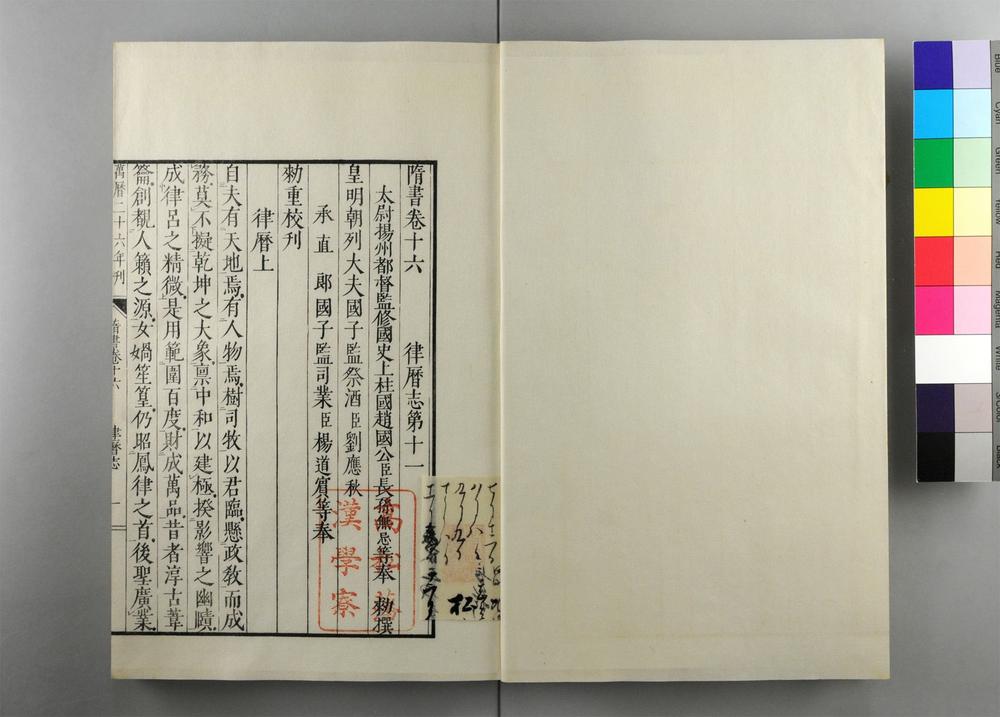 隋書卷十六 律曆志第十一
太尉揚州都督監修國史上柱國趙國公臣長孫無忌等奉 勑撰
皇明朝列大夫國子監祭酒臣劉應秋
承直郎國子監司業臣楊道賓等奉
勑重校刊
律曆上
自夫有天地焉有人物焉樹司牧以君臨懸政敎而成
務莫不擬乾坤之大象禀中和以建極揆影響之幽賾
成律呂之精微是用範圍百度財成萬品昔者淳古葦
籥創覩人籟之源女媧笙篁仍昭鳳律之首後聖廣業
萬曆二十六年刊 隋書卷十六 律曆志 一
漢學寮
松
Blue
Cyan
Green
Yellow
Red
Magenta
White
Black